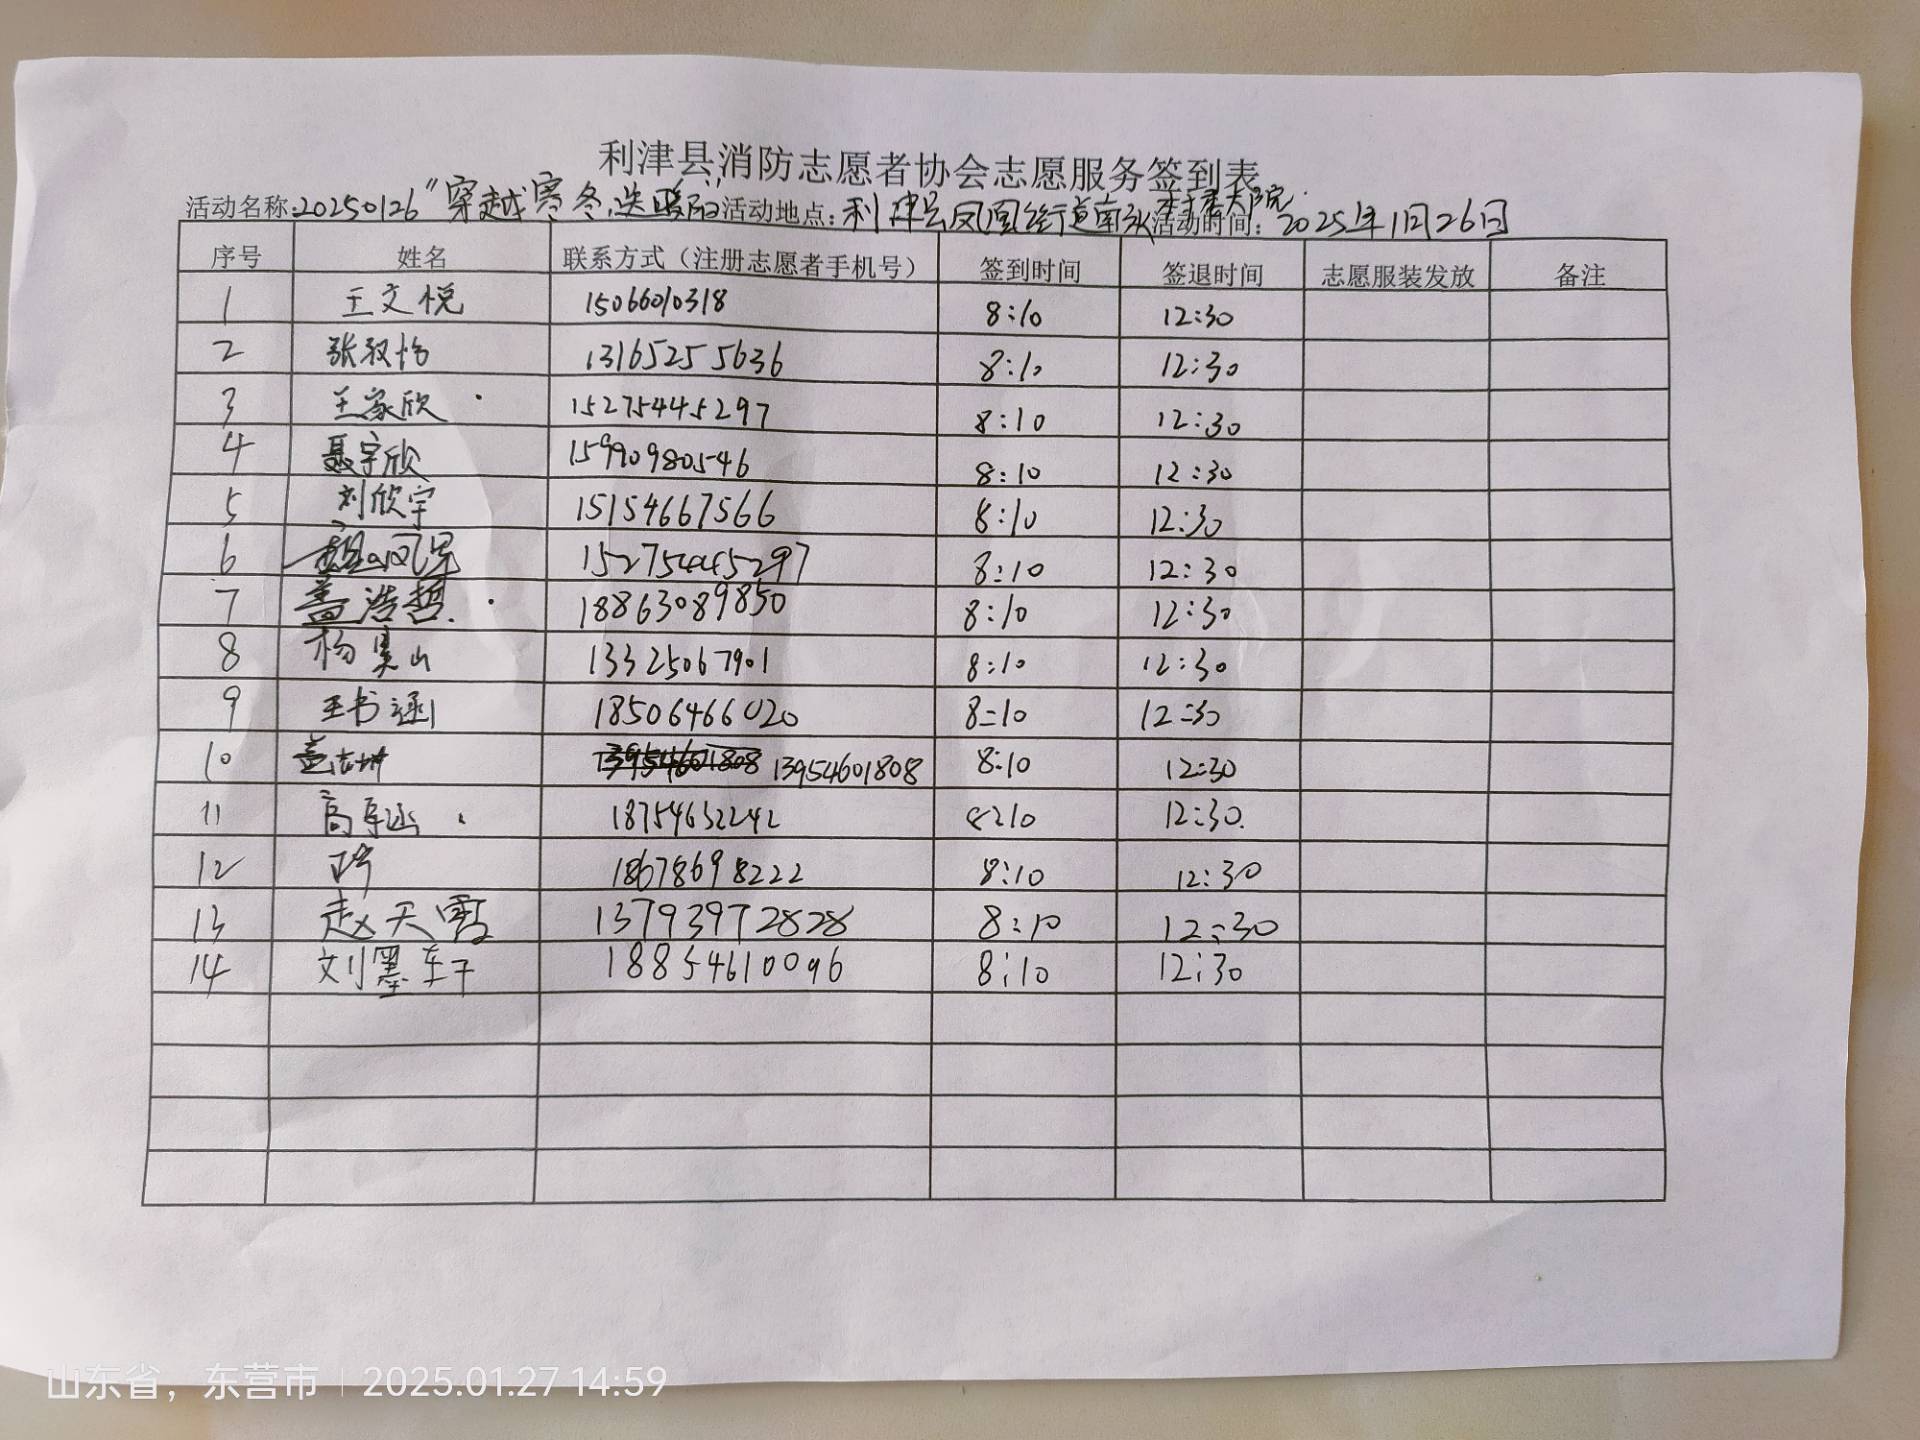 利津县消防志愿者协会志愿服务签到表
活动名称:20250126"穿越寒冬,送暖阳" 活动地点:利津县凤凰街道南 活动时间: 2025年1月26日
序号 姓名 联系方式（注册志愿者手机号） 签到时间 签退时间 志愿服装发放 备注
1 王文悦 15066010318 8:10 12:30
2 张双怡 13165255636 8:10 12:30
3 王家欣 15275445297 8:10 12:30
4 聂宇欣 15990980546 8:10 12:30
5 刘欣宇 15154667566 8:10 12:30
6 15275445297 8:10 12:30
7 盖浩哲 18863089850 8:10 12:30
8 杨昊山 13325067901 8:10 12:30
9 王书涵 18506466020 8:10 12:30
10 13954601808 13954601808 8:10 12:30
11 高卓涵 18754632242 8:10 12:30
12 18678698222 8:10 12:30
13 赵天霞 13793972828 8:10 12:30
14 刘墨轩 18854610096 8:10 12:30
山东省，东营市 | 2025.01.27 14:59